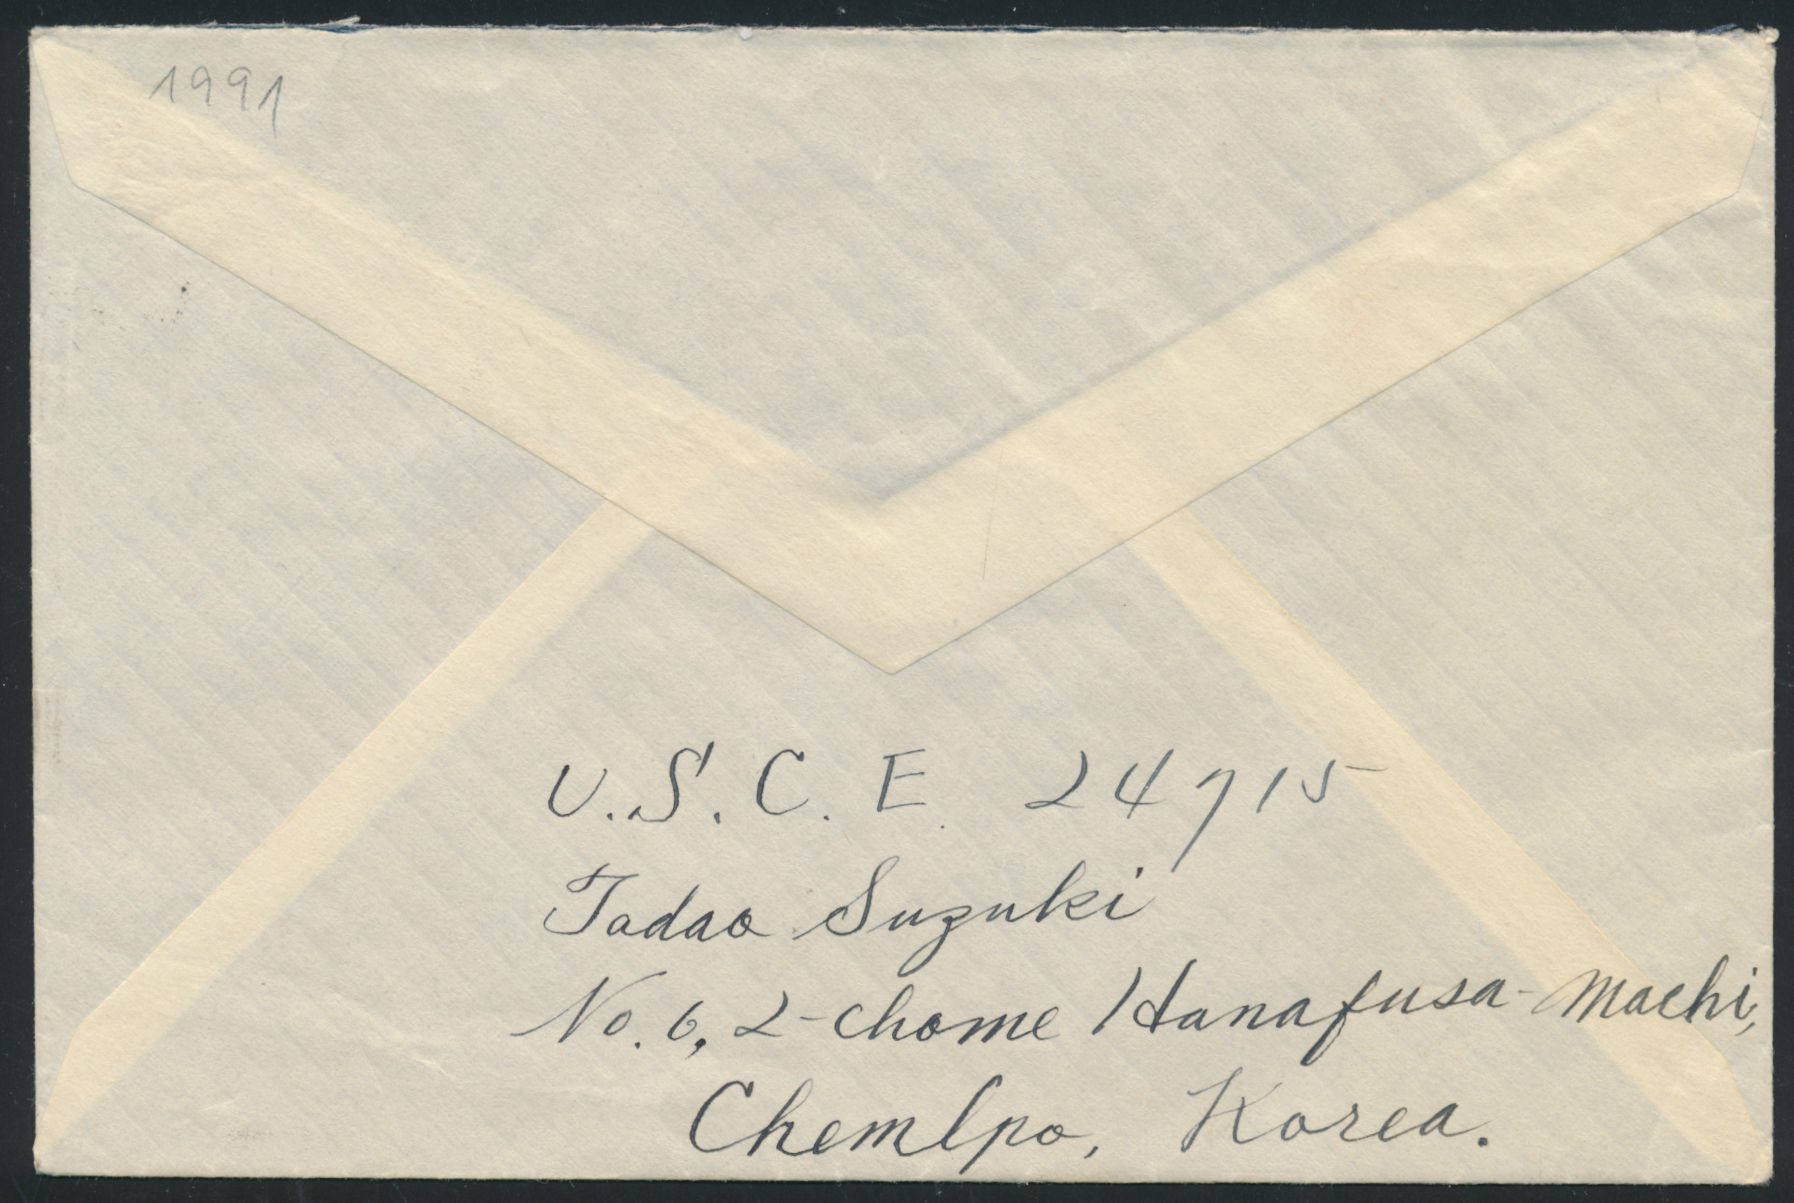 1991
U.S.C.E. 24715
Tadao Suzuki
No. 6, 2-chome Hanafusa-machi,
Chemlpo, Korea.